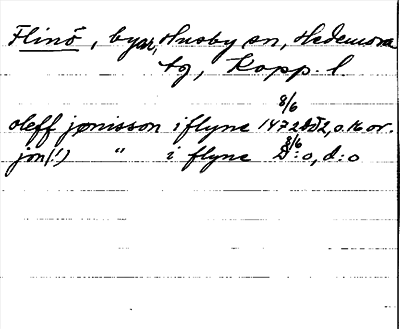 Flinö, byar, Husby sn, Hedemora
tg, Kopp. l.
8/6
oleff jønisson i flyne 1472 D2, o. 16 or.
8/6
jon(!) " i flyne D:o, d:o